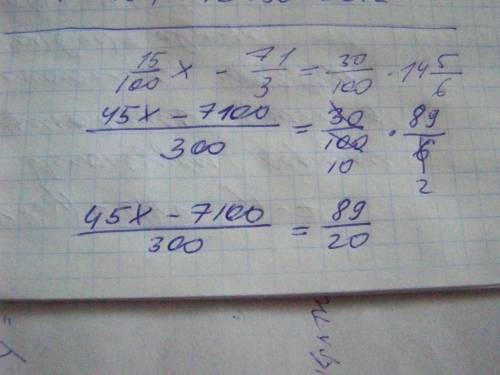 15/100 x - 71/3 = 30/100 · 14 5/6
45x - 7100/300 = 30/100 10 · 89/6 2
45x - 7100/300 = 89/20